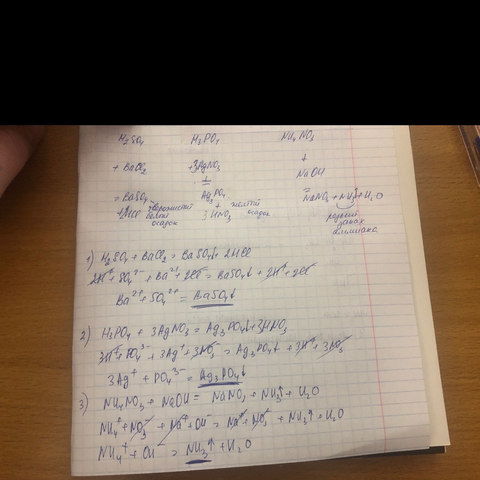 H₂SO₄ H₃PO₄ NH₄NO₃
+ BaCl₂ +3AgNO₃ + NaOH
= BaSO₄ творожистый белый осадок = Ag₃PO₄ + желтый осадок = NaNO₃ + NH₃↑ + H₂O
+2HCl 3HNO₃ резкий запах аммиака
1) H₂SO₄ + BaCl₂ = BaSO₄↓ + 2HCl
2H⁺ + SO₄²⁻ + Ba²⁺ + 2Cl⁻ = BaSO₄↓ + 2H⁺ + 2Cl⁻
Ba²⁺ + SO₄²⁺ = BaSO₄↓
2) H₃PO₄ + 3AgNO₃ = Ag₃PO₄↓ + 3HNO₃
3H⁺ + PO₄³⁻ + 3Ag⁺ + 3NO₃⁻ = Ag₃PO₄↓ + 3H⁺ + 3NO₃⁻
3Ag⁺ + PO₄³⁻ = Ag₃PO₄↓
3) NH₄NO₃ + NaOH = NaNO₃ + NH₃↑ + H₂O
NH₄⁺ + NO₃⁻ + Na⁺ + OH⁻ = Na⁺ + NO₃⁻ + NH₃↑ + H₂O
NH₄⁺ + OH⁻ = NH₃↑ + H₂O